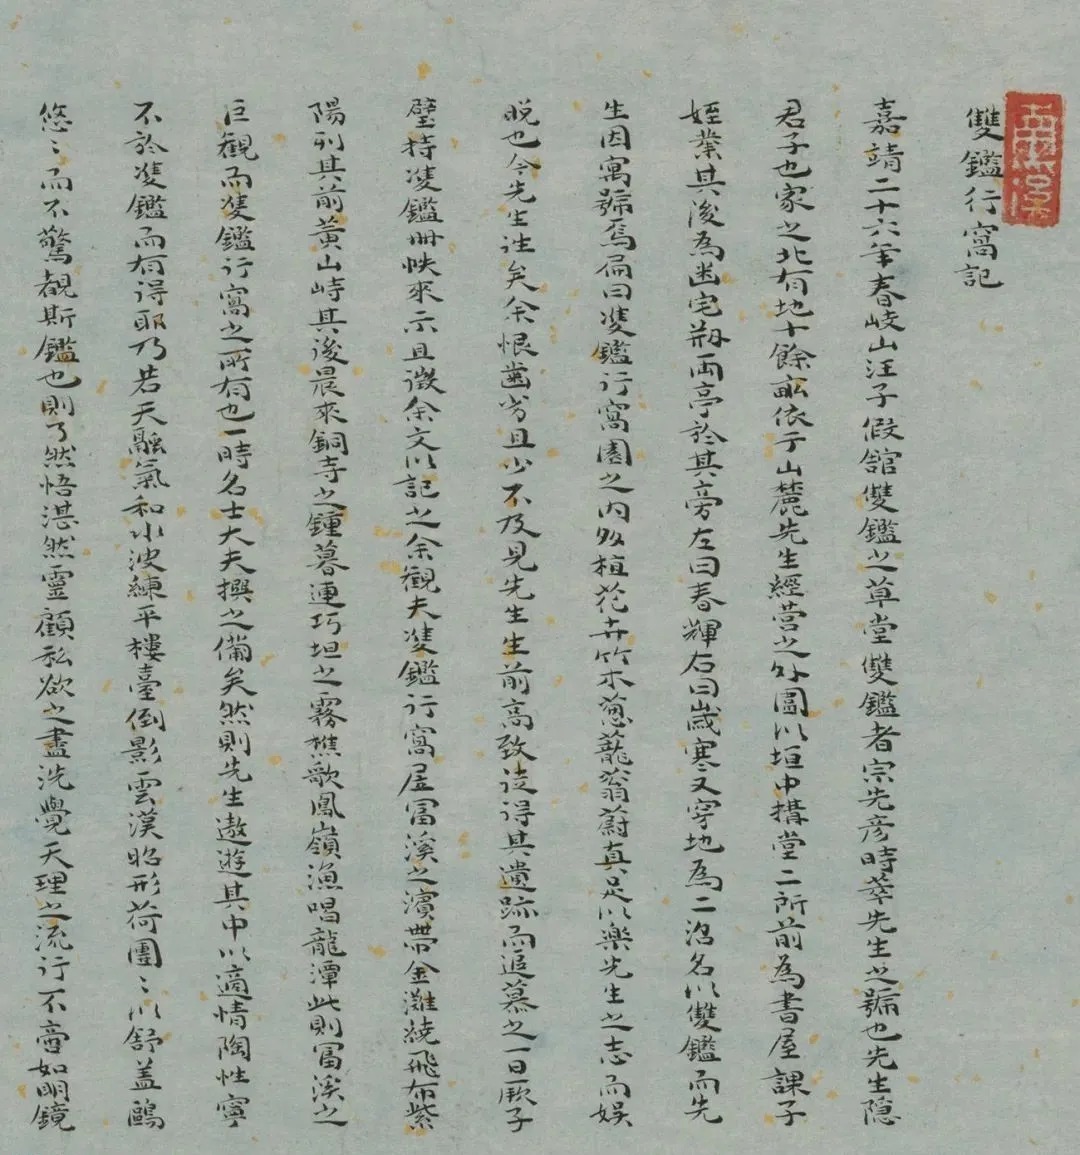 雙鑑行窩記
嘉靖二十六年春岐山汪子假舘雙鑑之草堂雙鑑者宗先彦時萃先生之號也先生隱
君子也家之北有地十餘畝依于山麓先生經营之外圍以垣中搆堂二所前為書屋課子
姪業其後為幽宅剏兩亭於其旁左曰春輝右曰歲寒又穿地為二沼名以雙鑑而先
生因寓號焉扁曰雙鑑行窩園之内多植花卉竹木葱蘢蓊蔚真足以樂先生之志而娱
晚也今先生逝矣余恨齒劣且少不及見先生生前高致徒得其遺跡而追慕之一日厥子
璧持雙鑑冊帙來示且徵余文以記之余觀夫雙鑑行窩居富溪之濱帶金灘繞飛布紫
陽列其前黄山峙其後晨來銅寺之鍾暮連巧坦之霧樵歌鳳嶺漁唱龍潭此則富溪之
巨觀而雙鑑行窩之所有也一時名士大夫撰之備矣然則先生遨遊其中以適情陶性寧
不於雙鑑而有得耶乃若天融氣和水波練平樓臺倒影雲漢昭形荷團〻以舒盖鷗
悠〻而不驚覩斯鑑也則了然悟湛然靈顧私欲之盡洗覺天理之流行不啻如明鏡